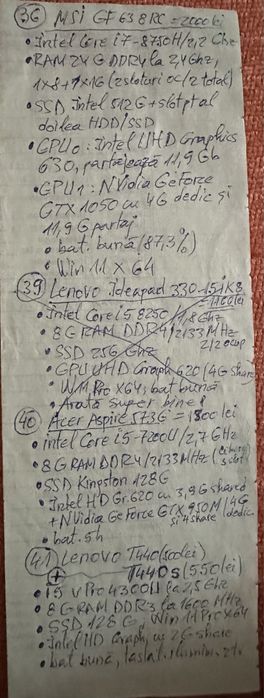 36 MSi GF 63 8RC = 2000 lei
• Intel Core i7-8750H/2,2 Ghz
• RAM 24G DDR4 la 2,4Ghz,
1x8+1x16 (2sloturi oc/2 total)
• SSD Intel 512G + slot pt al
doilea HDD/SSD
• GPU0: Intel UHD Graphics
630, partajează 11,9Gb
• GPU1: NVidia GeForce
GTX 1050 cu 4G dedic și
11,9G partaj
• bat. bună (87,3%)
• Win 11 x 64
39 Lenovo Ideapad 330-15iKB
= 1100lei
• Intel Core i5 8250 / 1,8Ghz
• 8G RAM DDR4/2133MHz
2/2 ocup
• SSD 256 Ghz
• GPU UHD Graph 620/4G share
• W11 Pro x64, bat bună
• Arată super bine!
40 Acer Aspire 573G = 1300 lei
• intel Core i5-7200U/2,7GHz
• 8G RAM DDR4/2133MHz
• SSD Kingston 128G
• Intel HD Gr.620 cu 3,9G shared
+ NVidia GeForce GTX 950M/4G dedic.
si 4 share
• bat. 5h
41 Lenovo T440 (500lei)
+ T440s (550lei)
• i5 vPro 4300U la 2,5Ghz
• 8G RAM DDR3 la 1600 MHz
• SSD 128G, Win 11 Pro x64
• Intel HD Graph, cu 2G share
• bat bună, tastat. ilumin.